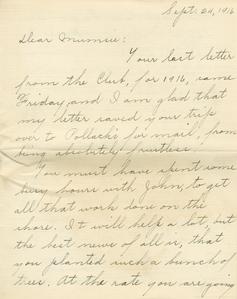 Sept. 24, 1916
Dear Mumsie:
Your last letter
from the Club, for 1916, came
Friday, and I am glad that
my letter saved your trip
over to Pollock's for mail, from
being absolutely fruitless.
You must have spent some
busy hours with John, to get
all that work done on the
shore. It will help a lot, but
the best news of all is, that
you planted such a bunch of
trees. At the rate you are going